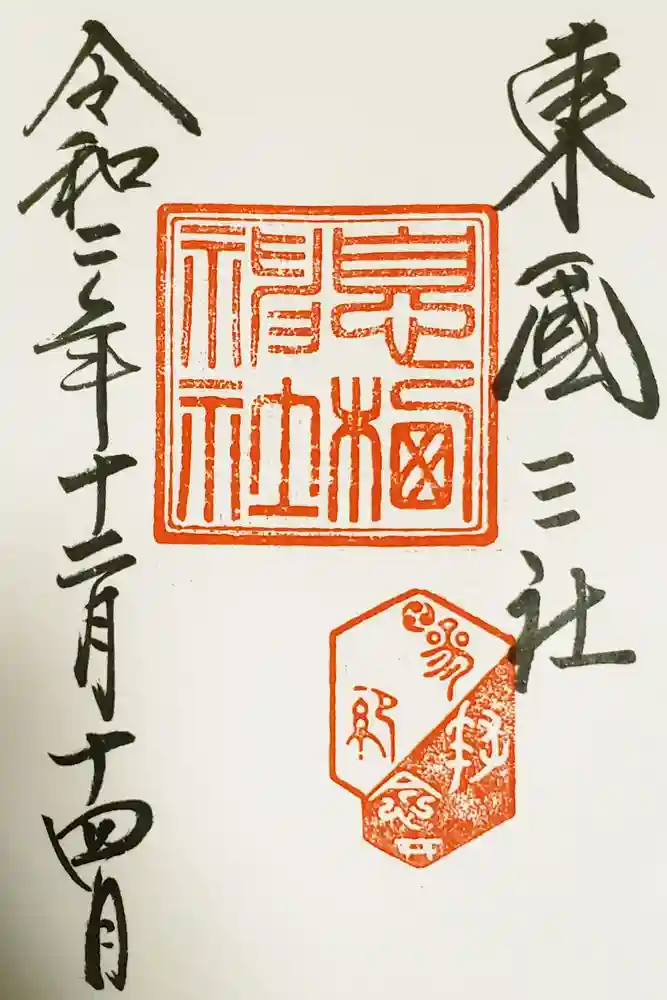 東國三社
息栖神社
参拝記念
令和二年十二月十四日